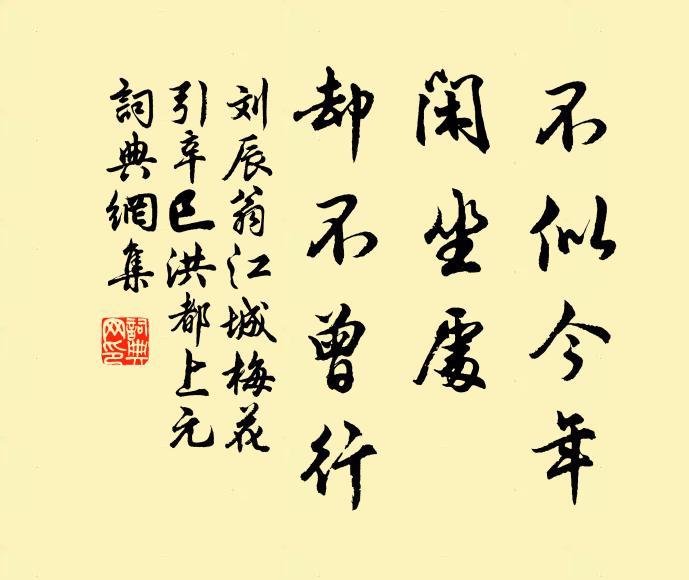 不似今年
闲坐處
却不曾行
刘辰翁江城梅花
引辛巳洪都上元
詞典網集
詞典
网印